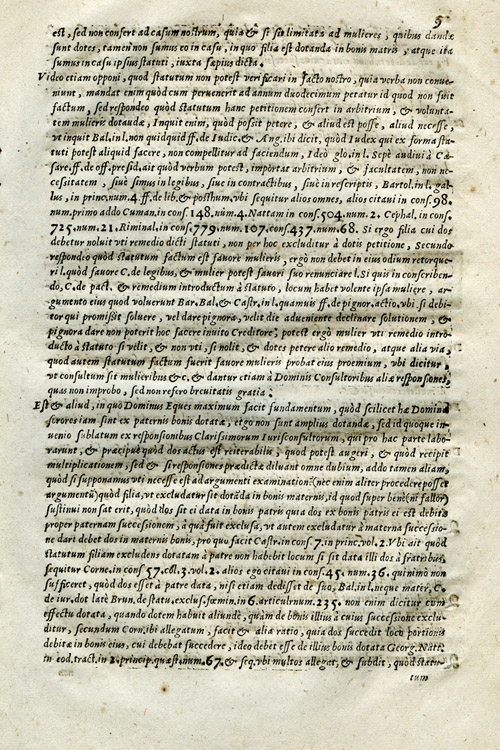 9
est, sed non confert ad casum nostrum, quia & si sic limitata ad mulieres, quibus dandæ
sunt dotes, tamen non sumus eo in casu, in quo filia est dotanda in bonis matris, atque ita
sumus in casu ipsius statuti, iuxta sæpius dicta.
Video etiam opponi, quod statutum non potest verificari in facto nostro, quia verba non conue-
niunt, mandat enim quòd cum peruenerit ad annum duodecimum petatur id quod non fuit
factum, sed respondeo quòd statutum hanc petitionem confert in arbitrium, & volunta-
tem mulieris dotandæ, Inquit enim, quòd possit petere, & aliud est posse, aliud necesse,
vt inquit Bal. in l. non quidquid ff. de Iudic. & Ang. ibi dicit, quòd Iudex qui ex forma sta-
tuti potest aliquid facere, non compellitur ad faciendum, Ideò glo. in l. Sepè audiui à Cæ-
sare. ff. de off. præsid. ait quòd verbum potest, importat arbitrium, & facultatem, non ne-
cessitatem, siuè simus in legibus, siue in contractibus, siuè in rescriptis, Bartol. in l. gal-
lus, in princ. num. 4. ff. de lib. & posthum. vbi sequitur alios omnes, alios citaui in cons. 98.
num. primo addo Cuman. in cons. 148. nũm. 4. Nattam in cons. 504. num. 2. Cephal. in cons.
725. num. 21. Riminal. in cons. 779. num. 107. cons. 437. num. 68. Si ergo filia cui dos
debetur noluit vti remedio dicti statuti, non per hoc excluditur à dotis petitione, Secundo
respondeo quòd statutum factum est fauore mulieris, ergò non debet in eius odium retorque-
ri l. quòd fauore C. de legibus, & mulier potest fauori suo renunciare l. Si quis in conscriben-
do, C. de pact. & remedium introductum à statuto, locum habet volente ipsa muliere, ar-
gumento eius quod voluerunt Bar. Bal. & Castr. in l. quamuis ff. de pignor. actio. vbi si debi-
tor qui promisit soluere, vel dare pignora, velit die adueniente declinare solutionem, &
pignora dare non poterit hoc facere inuito Creditore, potest ergò mulier vti remedio intro-
ducto à statuto si velit, & non vti, si nolit, & dotes petere alio remedio, atque alia via,
quod autem statutum factum fuerit fauore mulieris probat eius proemium, vbi dicitur,
vt consultum sit mulieribus &c, & dantur etiam à Dominis Consultoribus aliæ responsiones,
quas non improbo, sed non refero breuitatis gratia.
Est & aliud, in quo Dominus Eques maximum facit fundamentum, quòd scilicet hæ Dominæ
sorores iam sint ex paternis bonis dotatæ, ergo non sunt amplius dotandæ, sed id quoque in-
uenio sublatum ex responsionibus Clarissimorum Iurisconsultorum, qui pro hac parte labo-
rarunt, & præcipuè quòd dos actus est reiterabilis, quod potest augeri, & quòd recipit
multiplicationem, sed & si responsiones prædictæ diluant omne dubium, addo tamen aliam,
quòd si supponamus vti necesse est ad argumenti examination&(nec enim aliter procedere posset
argumentũ) quòd filia, vt excludatur sit dotãda in bonis maternis, id quod super benè(ni fallor)
sustinui non sat erit, quòd dos sit ei data in bonis patris quia dos ex bonis patris ei est debita
proper paternam successionem, à qua fuit exclusa, vt autem excludatur à materna successio-
ne dari debet dos in maternis bonis, pro quo facit Castr. in cons. 7. in princ. vol. 2. Vbi ait quòd
statutum filiam excludens dotatam à patre non habebit locum si sit data illi dos à fratribus,
sequitur Corne. in cons 57. col. 3. vol. 2. alios ego citaui in cons. 45. num. 36. quinimò non
sufficeret, quòd dos esset à patre data, nisi etiam dedisset de suo, Bal. in l. neque mater, C.
de iur. dot latè Brun. de statu. exclus. fœmin. in 6. articul. num. 235. non enim dicitur cum
effectu dotata, quando dotem habuit aliundè, quàm de bonis illius à cuius successione exclu-
ditur, secundum Corn. ibi allegatum, facit & alia ratio, quia dos succedit loco portionis
debitæ in bonis eius, cui debebat succedere, ideò debet esse de illius bonis dotata Georg. Natt.
in eod. tract. in 2. princip. quæst. num. 67. & seq. vbi multos allegat, & subdit, quòd statu-
tum